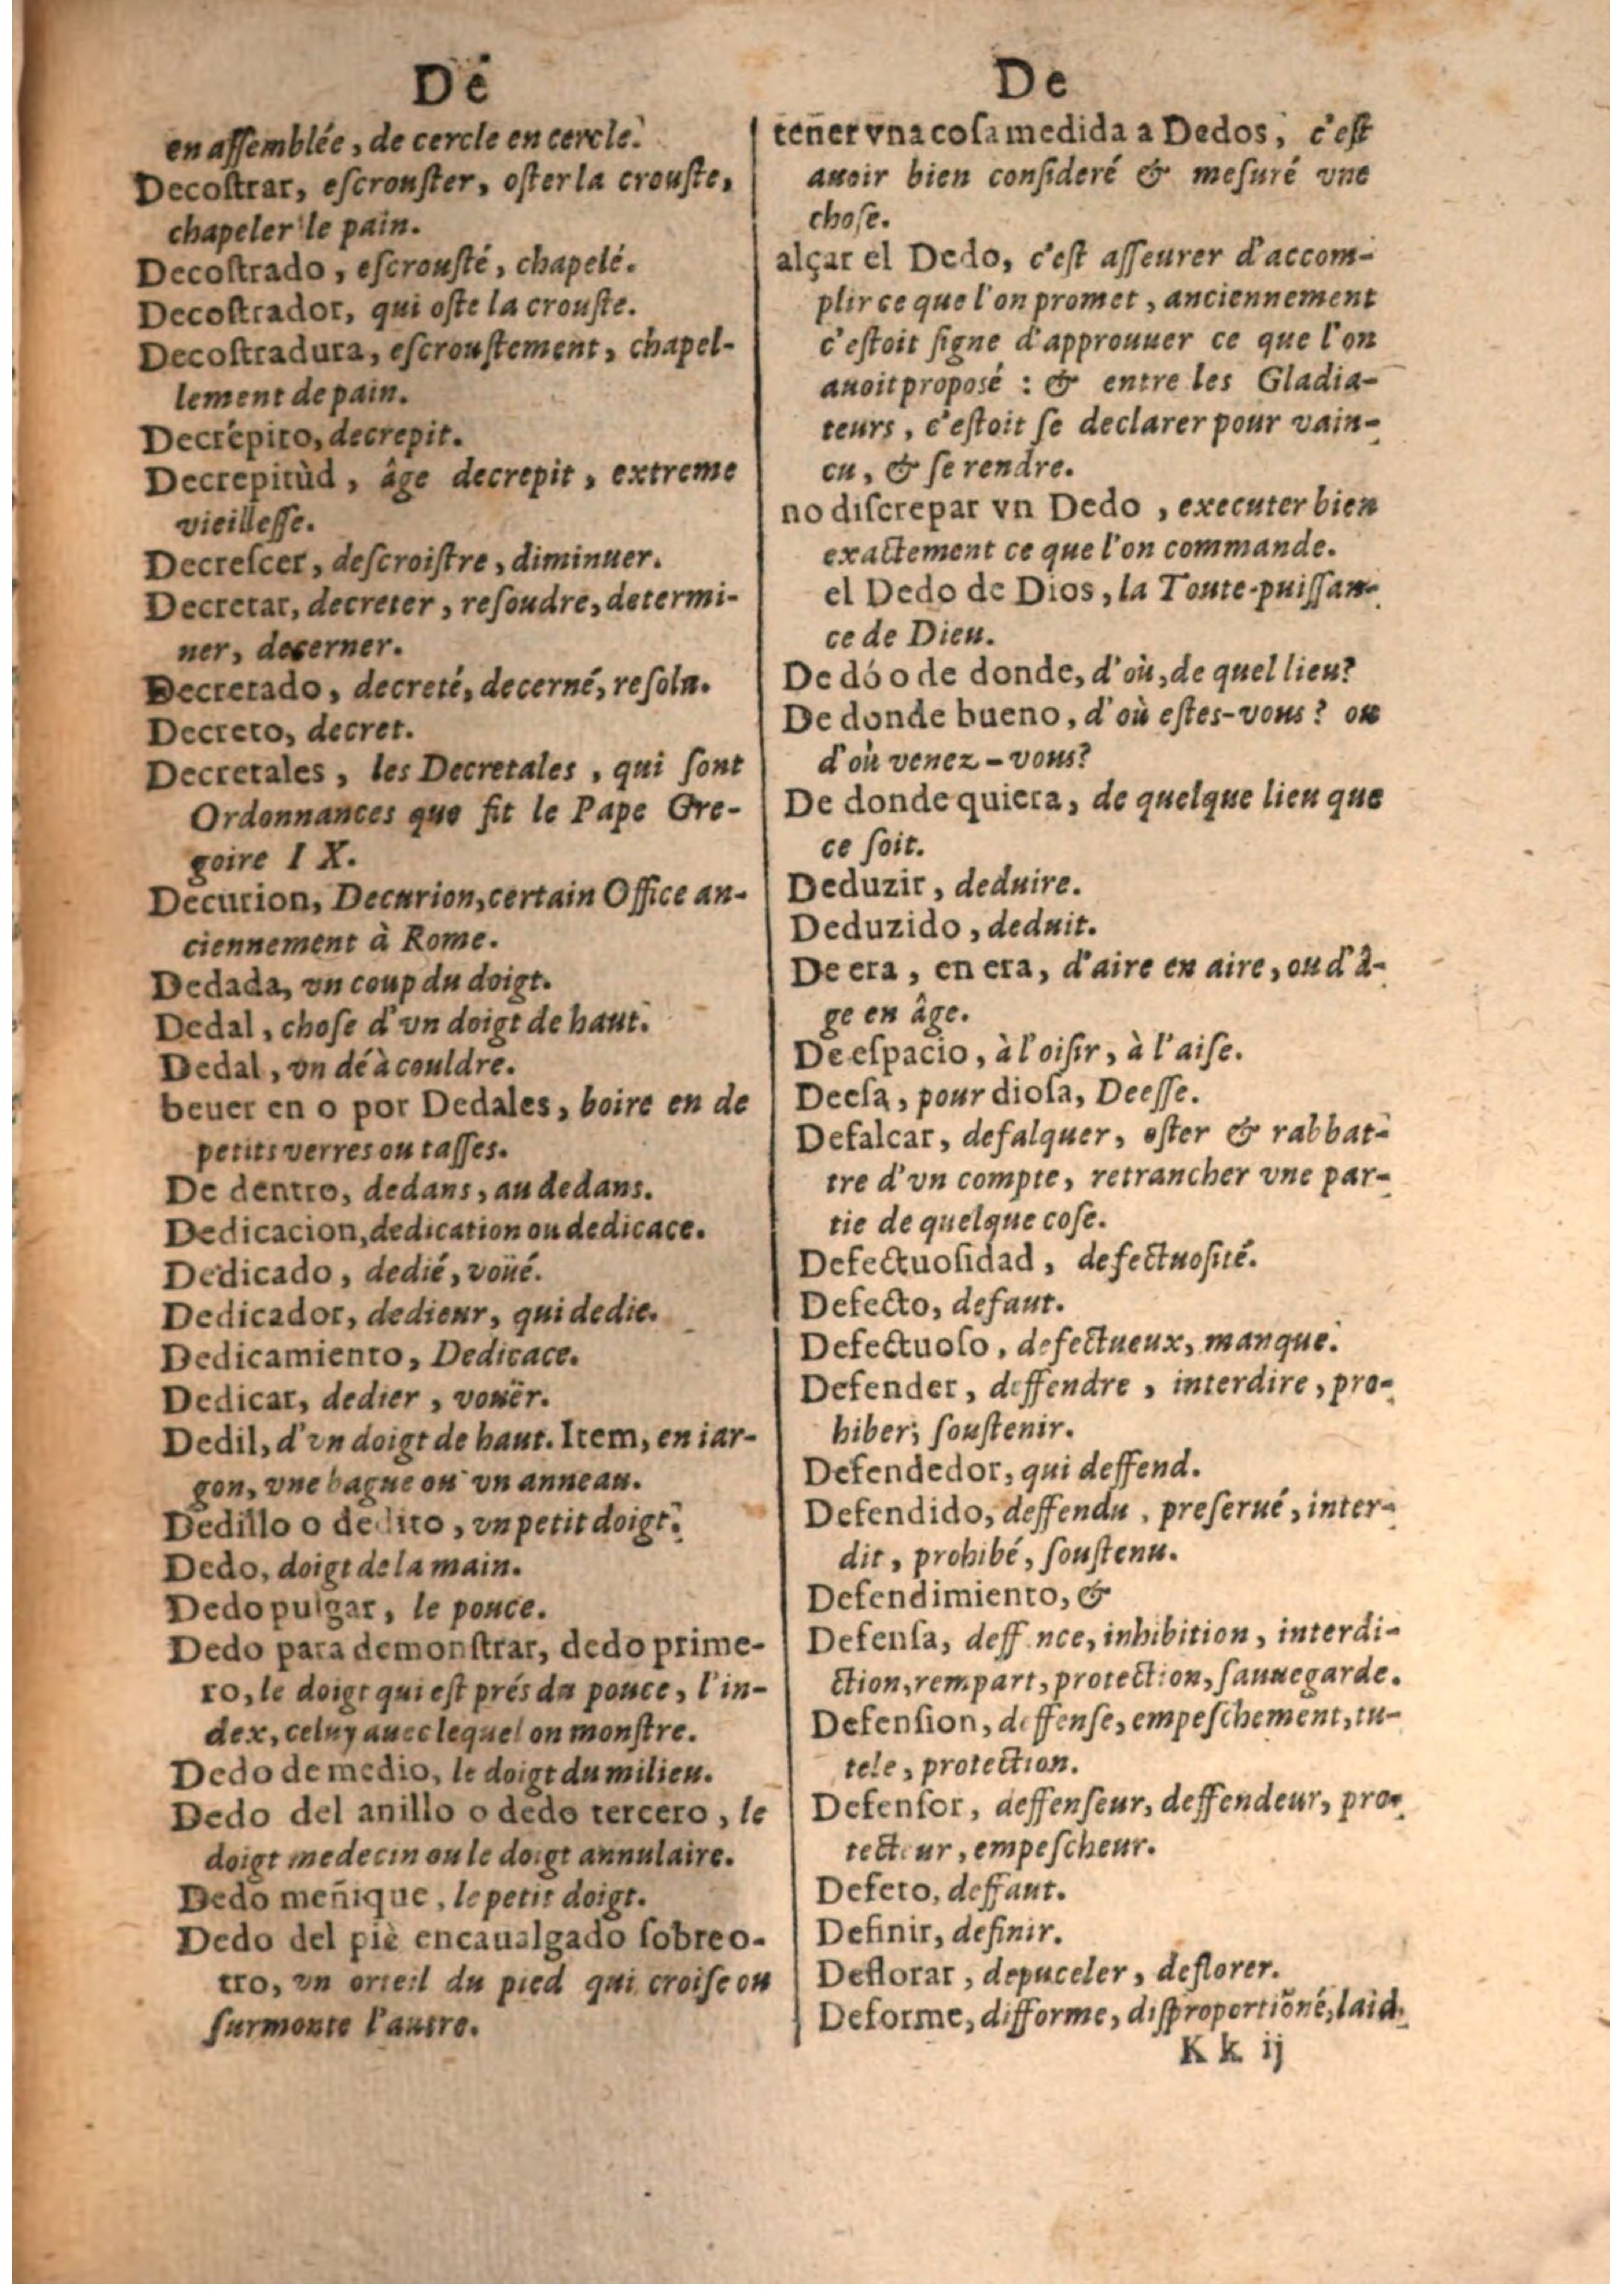 Dé
en aſſemblée, de cercle en cercle.
Decoſtrar, eſcrouſter, oſter la crouſte,
chapeler le pain.
Decoſtrado, eſcrouſté, chapelé.
Decoſtrador, qui oſte la crouſte.
Decoſtradura, eſcrouſtement, chapel-
lement de pain.
Decrépito, decrepit.
Decrepitùd, âge decrepit, extreme
vieilleſſe.
Decreſcer, deſcroiſtre, diminuer.
Decretar, decreter, reſoudre, determi-
ner, decerner.
Decretado, decreté, decerné, reſolu.
Decreto, decret.
Decretales, les Decretales, qui ſont
Ordonnances que fit le Pape Gre-
goire IX.
Decurion, Decurion, certain Office an-
ciennement à Rome.
Dedada, vn coup du doigt.
Dedal, choſe d'vn doigt de haut.
Dedal, vn dé à couldre.
beuer en o por Dedales, boire en de
petits verres ou taſſes.
De dentro, dedans, au dedans.
Dedicacion, dedication ou dedicace.
Dedicado, dedié, voüé.
Dedicador, dedieur, qui dedie.
Dedicamiento, Dedicace.
Dedicar, dedier, vouër.
Dedil, d'vn doigt de haut. Item, en iar-
gon, vne bague ou vn anneau.
Dedillo o dedito, vn petit doigt.
Dedo, doigt de la main.
Dedo pulgar, le pouce.
Dedo para demonſtrar, dedo prime-
ro, le doigt qui eſt prés du pouce, l'in-
dex, celuy auec lequel on monſtre.
Dedo de medio, le doigt du milieu.
Dedo del anillo o dedo tercero, le
doigt medecin ou le doigt annulaire.
Dedo meñique, le petit doigt.
Dedo del piè encaualgado ſobre o-
tro, vn orteil du pied qui croiſe ou
ſurmonte l'autre.
De
tener vna coſa medida a Dedos, c'eſt
auoir bien conſideré & meſuré vne
choſe.
alçar el Dedo, c'eſt aſſeurer d'accom-
plir ce que l'on promet, anciennement
c'eſtoit ſigne d'approuuer ce que l'on
auoit proposé : & entre les Gladia-
teurs, c'eſtoit ſe declarer pour vain-
cu, & ſe rendre.
no diſcrepar vn Dedo, executer bien
exactement ce que l'on commande.
el Dedo de Dios, la Toute-puiſſan-
ce de Dieu.
De dó o de donde, d'où, de quel lieu?
De donde bueno, d'où eſtes-vous? ou
d'où venez-vous?
De donde quiera, de quelque lieu que
ce ſoit.
Deduzir, deduire.
Deduzido, deduit.
De era, en era, d'aire en aire, ou d'â-
ge en âge.
De eſpacio, à l'oiſir, à l'aiſe.
Deeſa, pour dioſa, Deeſſe.
Defalcar, defalquer, oſter & rabbat-
tre d'vn compte, retrancher vne par-
tie de quelque coſe.
Defectuoſidad, defectuoſité.
Defecto, defaut.
Defectuoſo, defectueux, manque.
Defender, deffendre, interdire, pro-
hiber, ſouſtenir.
Defendedor, qui deffend.
Defendido, deffendu, preſerué, inter-
dit, prohibé, ſouſtenu.
Defendimiento, &
Defenſa, deffence, inhibition, interdi-
ction, rempart, protection, ſauuegarde.
Defenſion, deffenſe, empeſchement, tu-
tele, protection.
Defenſor, deffenſeur, deffendeur, pro-
tecteur, empeſcheur.
Defeto, deffaut.
Definir, definir.
Deflorar, depuceler, deflorer.
Deforme, difforme, diſproportiõné, laid.
K k ij